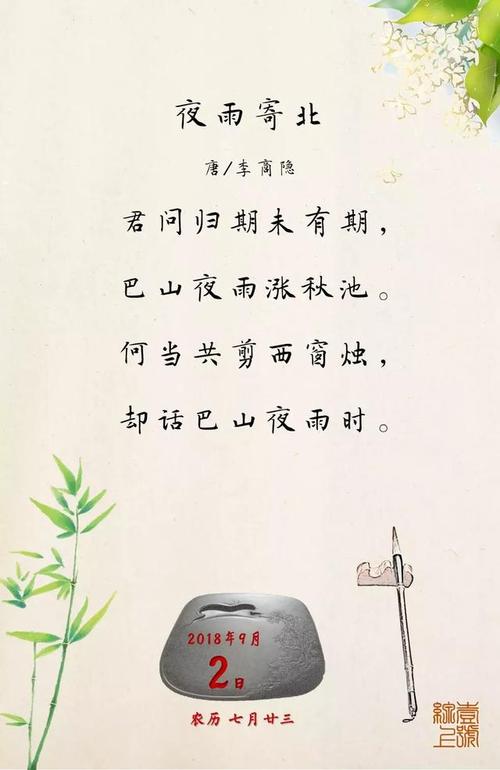 夜雨寄北
唐/李商隐
君问归期未有期，
巴山夜雨涨秋池。
何当共剪西窗烛，
却话巴山夜雨时。
2018年9月
2日
农历 七月廿三